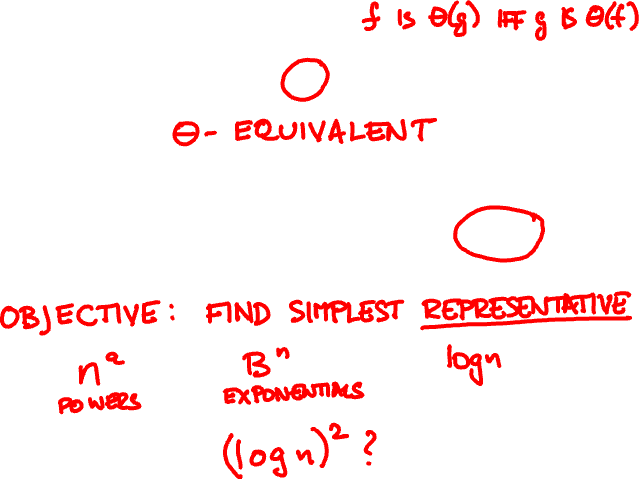 f IS Θ(g) IFF g IS Θ(f)
Θ- EQUIVALENT
OBJECTIVE: FIND SIMPLEST REPRESENTATIVE
nᵃ Bⁿ logn
POWERS EXPONENTIALS
(log n)² ?